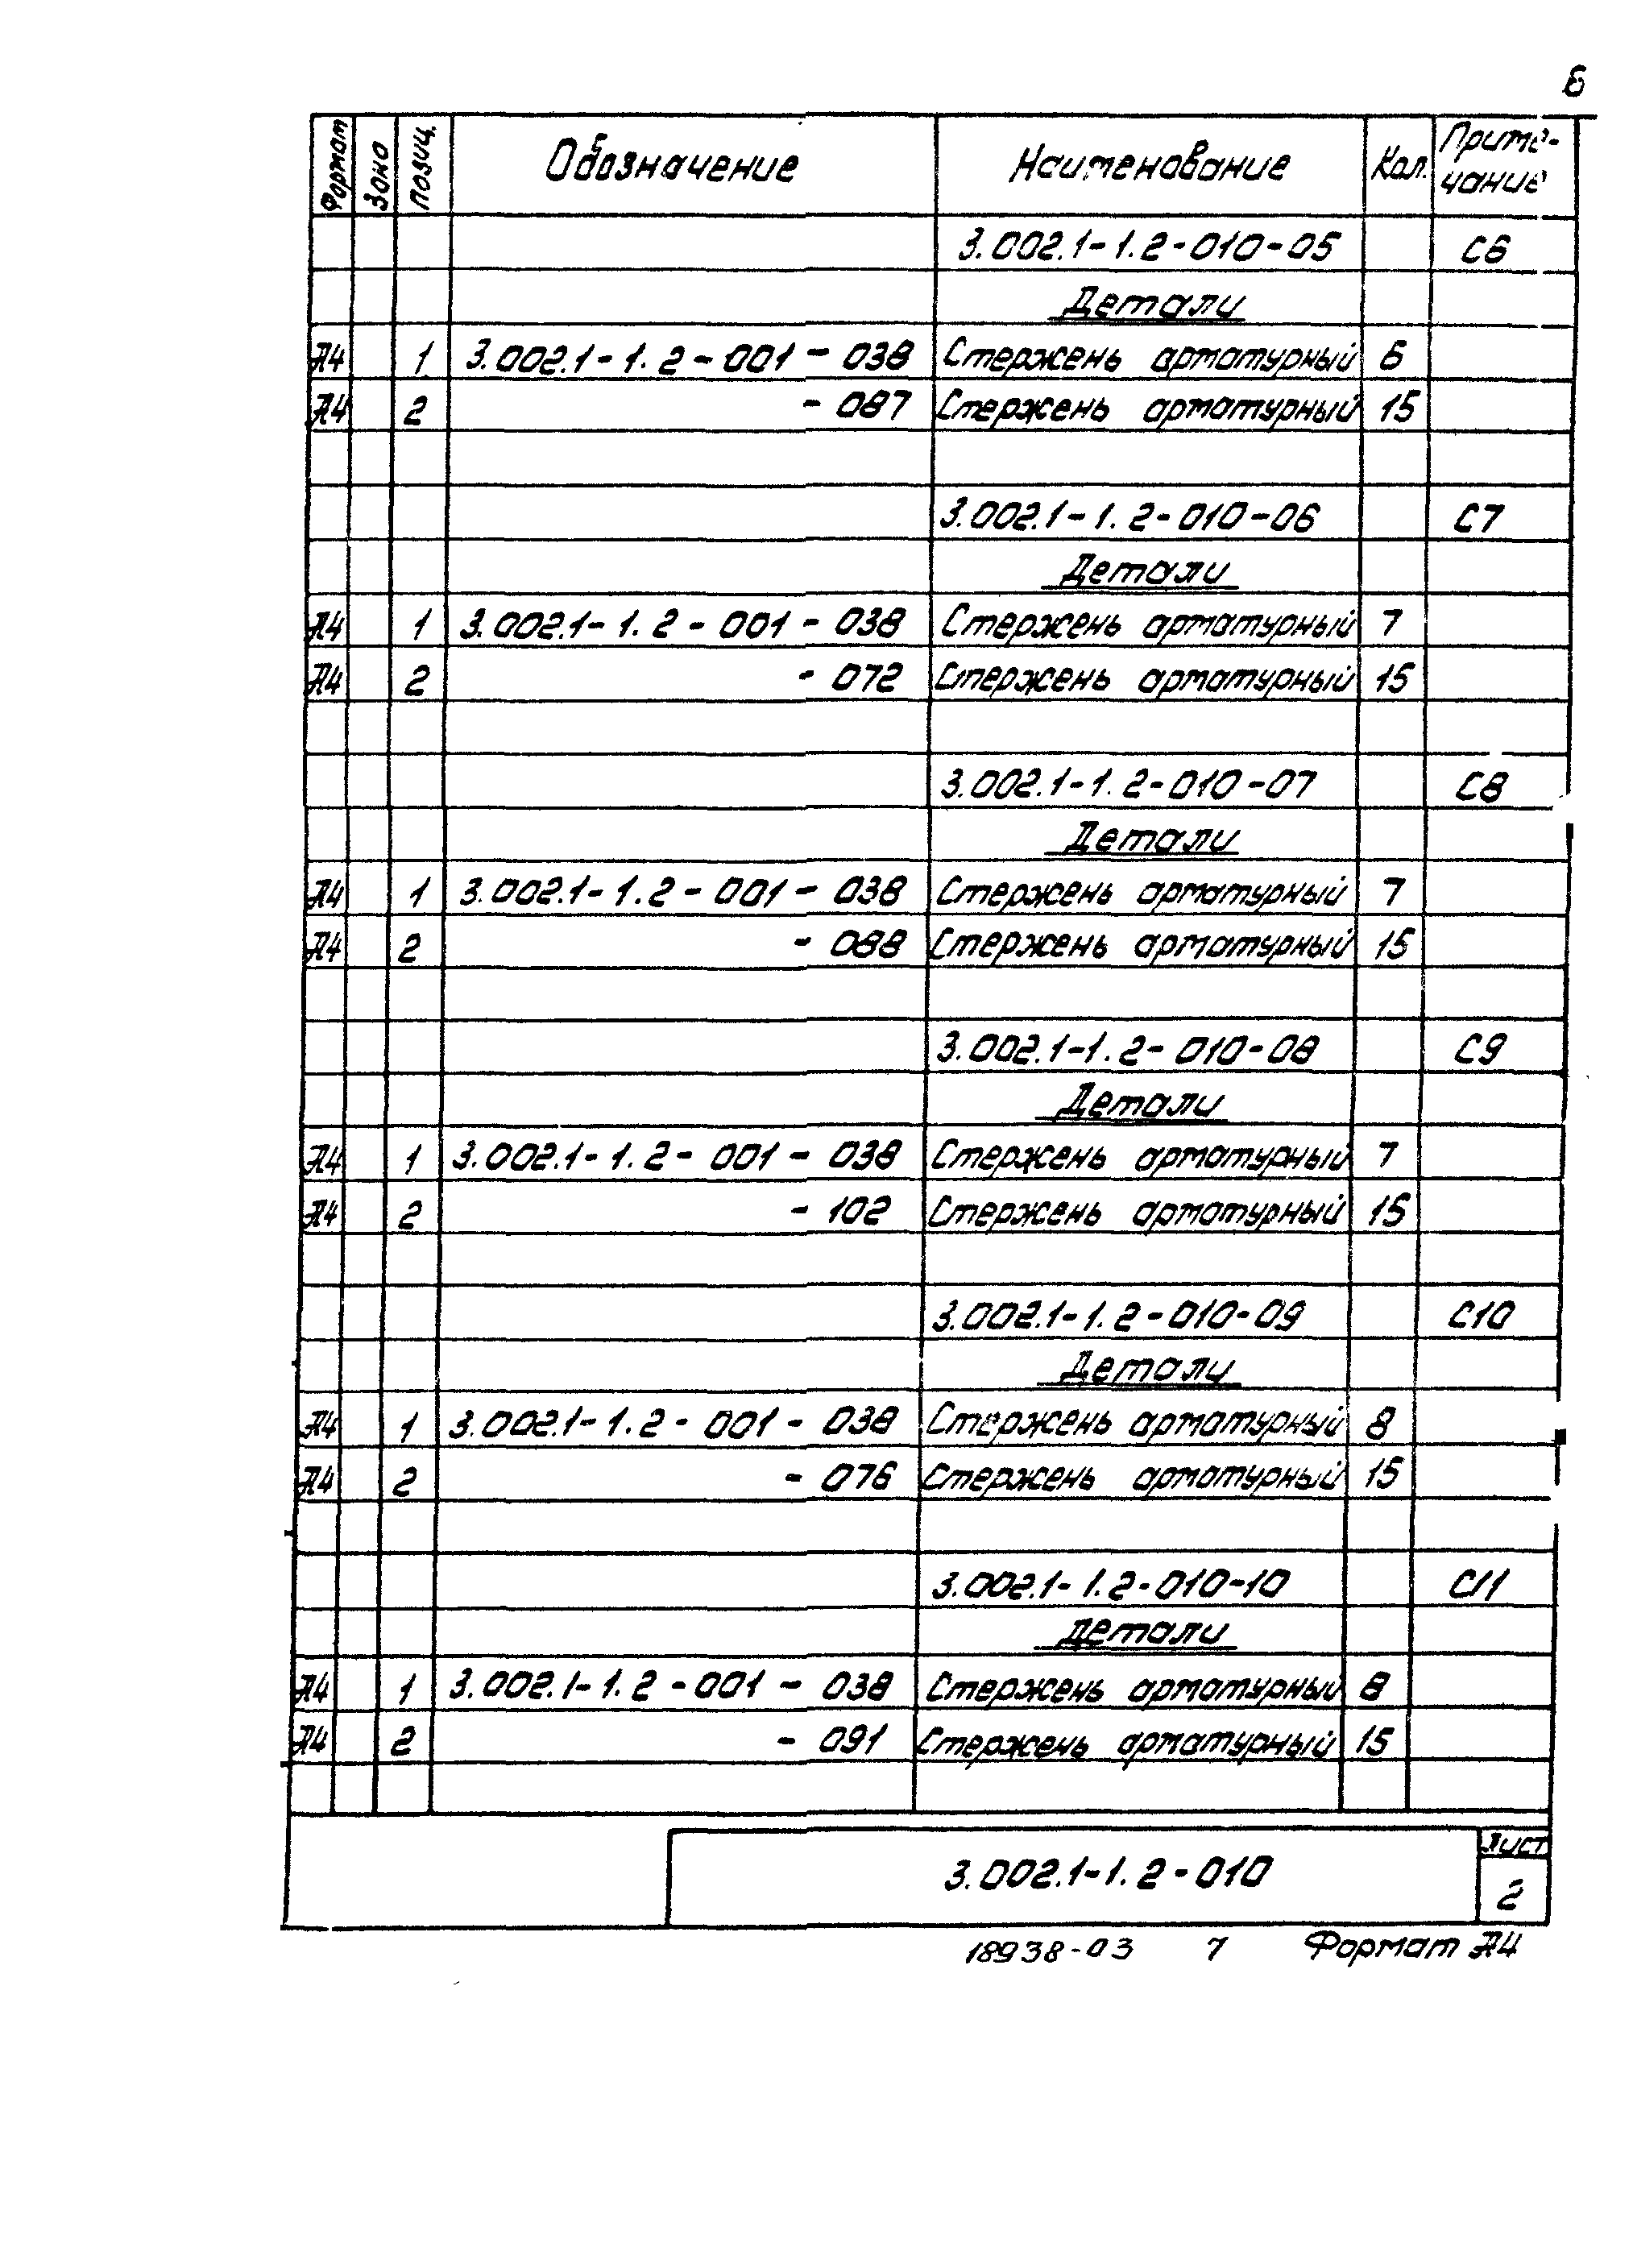 6
Формат Зона Позиц. Обозначение Наименование Кол. Приме-
чание
3.002.1-1.2-010-05 С6
Детали
А4 1 3.002.1-1.2-001-038 Стержень арматурный 6
А4 2 -087 Стержень арматурный 15
3.002.1-1.2-010-06 С7
Детали
А4 1 3.002.1-1.2-001-038 Стержень арматурный 7
А4 2 -072 Стержень арматурный 15
3.002.1-1.2-010-07 С8
Детали
А4 1 3.002.1-1.2-001-038 Стержень арматурный 7
А4 2 -088 Стержень арматурный 15
3.002.1-1.2-010-08 С9
Детали
А4 1 3.002.1-1.2-001-038 Стержень арматурный 7
А4 2 -102 Стержень арматурный 15
3.002.1-1.2-010-09 С10
Детали
А4 1 3.002.1-1.2-001-038 Стержень арматурный 8
А4 2 -076 Стержень арматурный 15
3.002.1-1.2-010-10 С11
Детали
А4 1 3.002.1-1.2-001-038 Стержень арматурный 8
А4 2 -091 Стержень арматурный 15
3.002.1-1.2-010
Лист
2
18938-03 7 Формат А4